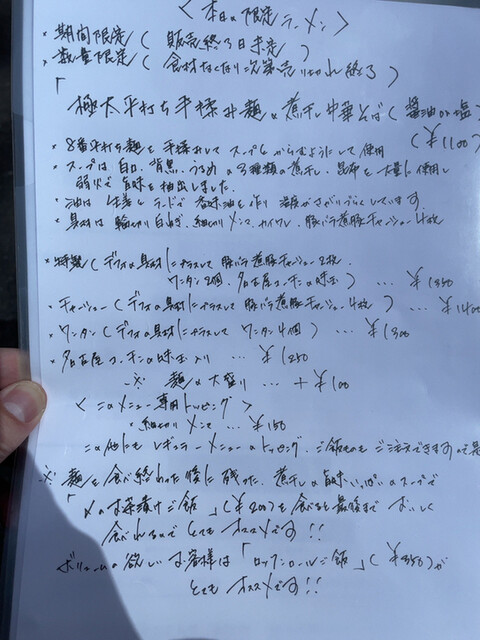 ＜本日の限定ラーメン＞
* 期間限定（販売終了日未定）
* 数量限定（食材なくなり次第売り切れ終了）
「極太平打ち手揉み麺の煮干し中華そば（醤油or塩）
（￥1100）
* 8番平打ち麺を手揉みしてスープがからむようにして使用
* スープは白口、背黒、うるめの3種類の煮干し、昆布を大量に使用し
弱火で旨味を抽出しました。
* 油は生姜とラードで香味油を作り温度がさがりづらくしています。
* 具材は輪切り白ねぎ、細切りメンマ、カイワレ、豚バラ煮豚チャーシュー4枚
* 特製（デフォの具材にプラスして豚バラ煮豚チャーシュー2枚、
ワンタン2個、名古屋コーチンの味玉）…￥1350
・チャーシュー（デフォの具材にプラスして豚バラ煮豚チャーシュー4枚）…￥1400
・ワンタン（デフォの具材にプラスしてワンタン4個）…￥1300
* 名古屋コーチンの味玉入り…￥1250
※ 麺の大盛り…＋￥100
＜このメニュー専用トッピング＞
* 細切りメンマ…￥150
この他にもレギュラーメニューのトッピング、ご飯ものもご注文できますので是
※ 麺を食べ終わった後に残った、煮干しの旨味いっぱいのスープで
「〆のお茶漬けご飯」（￥200）を食べると最後までおいしく
食べれるのでとてもオススメです！！
ボリュームの欲しいお客様は「ロックンロールご飯」（￥350）が
とてもオススメです！！